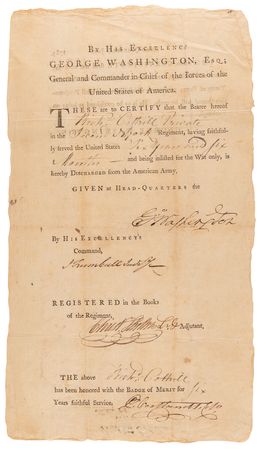 BY HIS EXCELLENCY
GEORGE WASHINGTON, ESQ;
General and Commander in Chief of the Forces of the
United States of America.
THESE are to CERTIFY that the Bearer hereof
Cottrill Private
in the Regiment, having faithful-
ly served the United States Six Years and six
Months and being inlisted for the War only, is
hereby DISCHARGED from the American Army.
GIVEN at HEAD-QUARTERS the
GoWashington
BY HIS EXCELLENCY'S
Command,
JTrumbull Jun
REGISTERED in the Books
of the Regiment,
Adjutant,
THE above Cottrill
has been honored with the BADGE of MERIT for six
Years faithful Service.